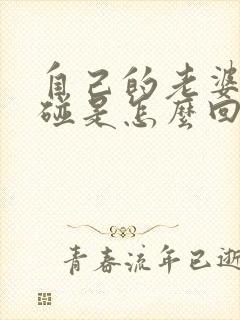 自己的老婆
碰是怎麼回
青春流年已逝